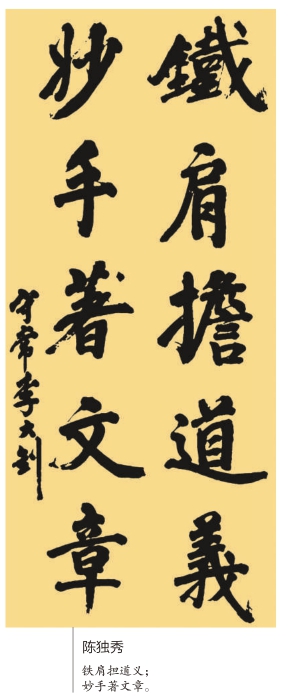 鐵肩擔道義
妙手著文章
守常李大釗
陈独秀
铁肩担道义；
妙手著文章。